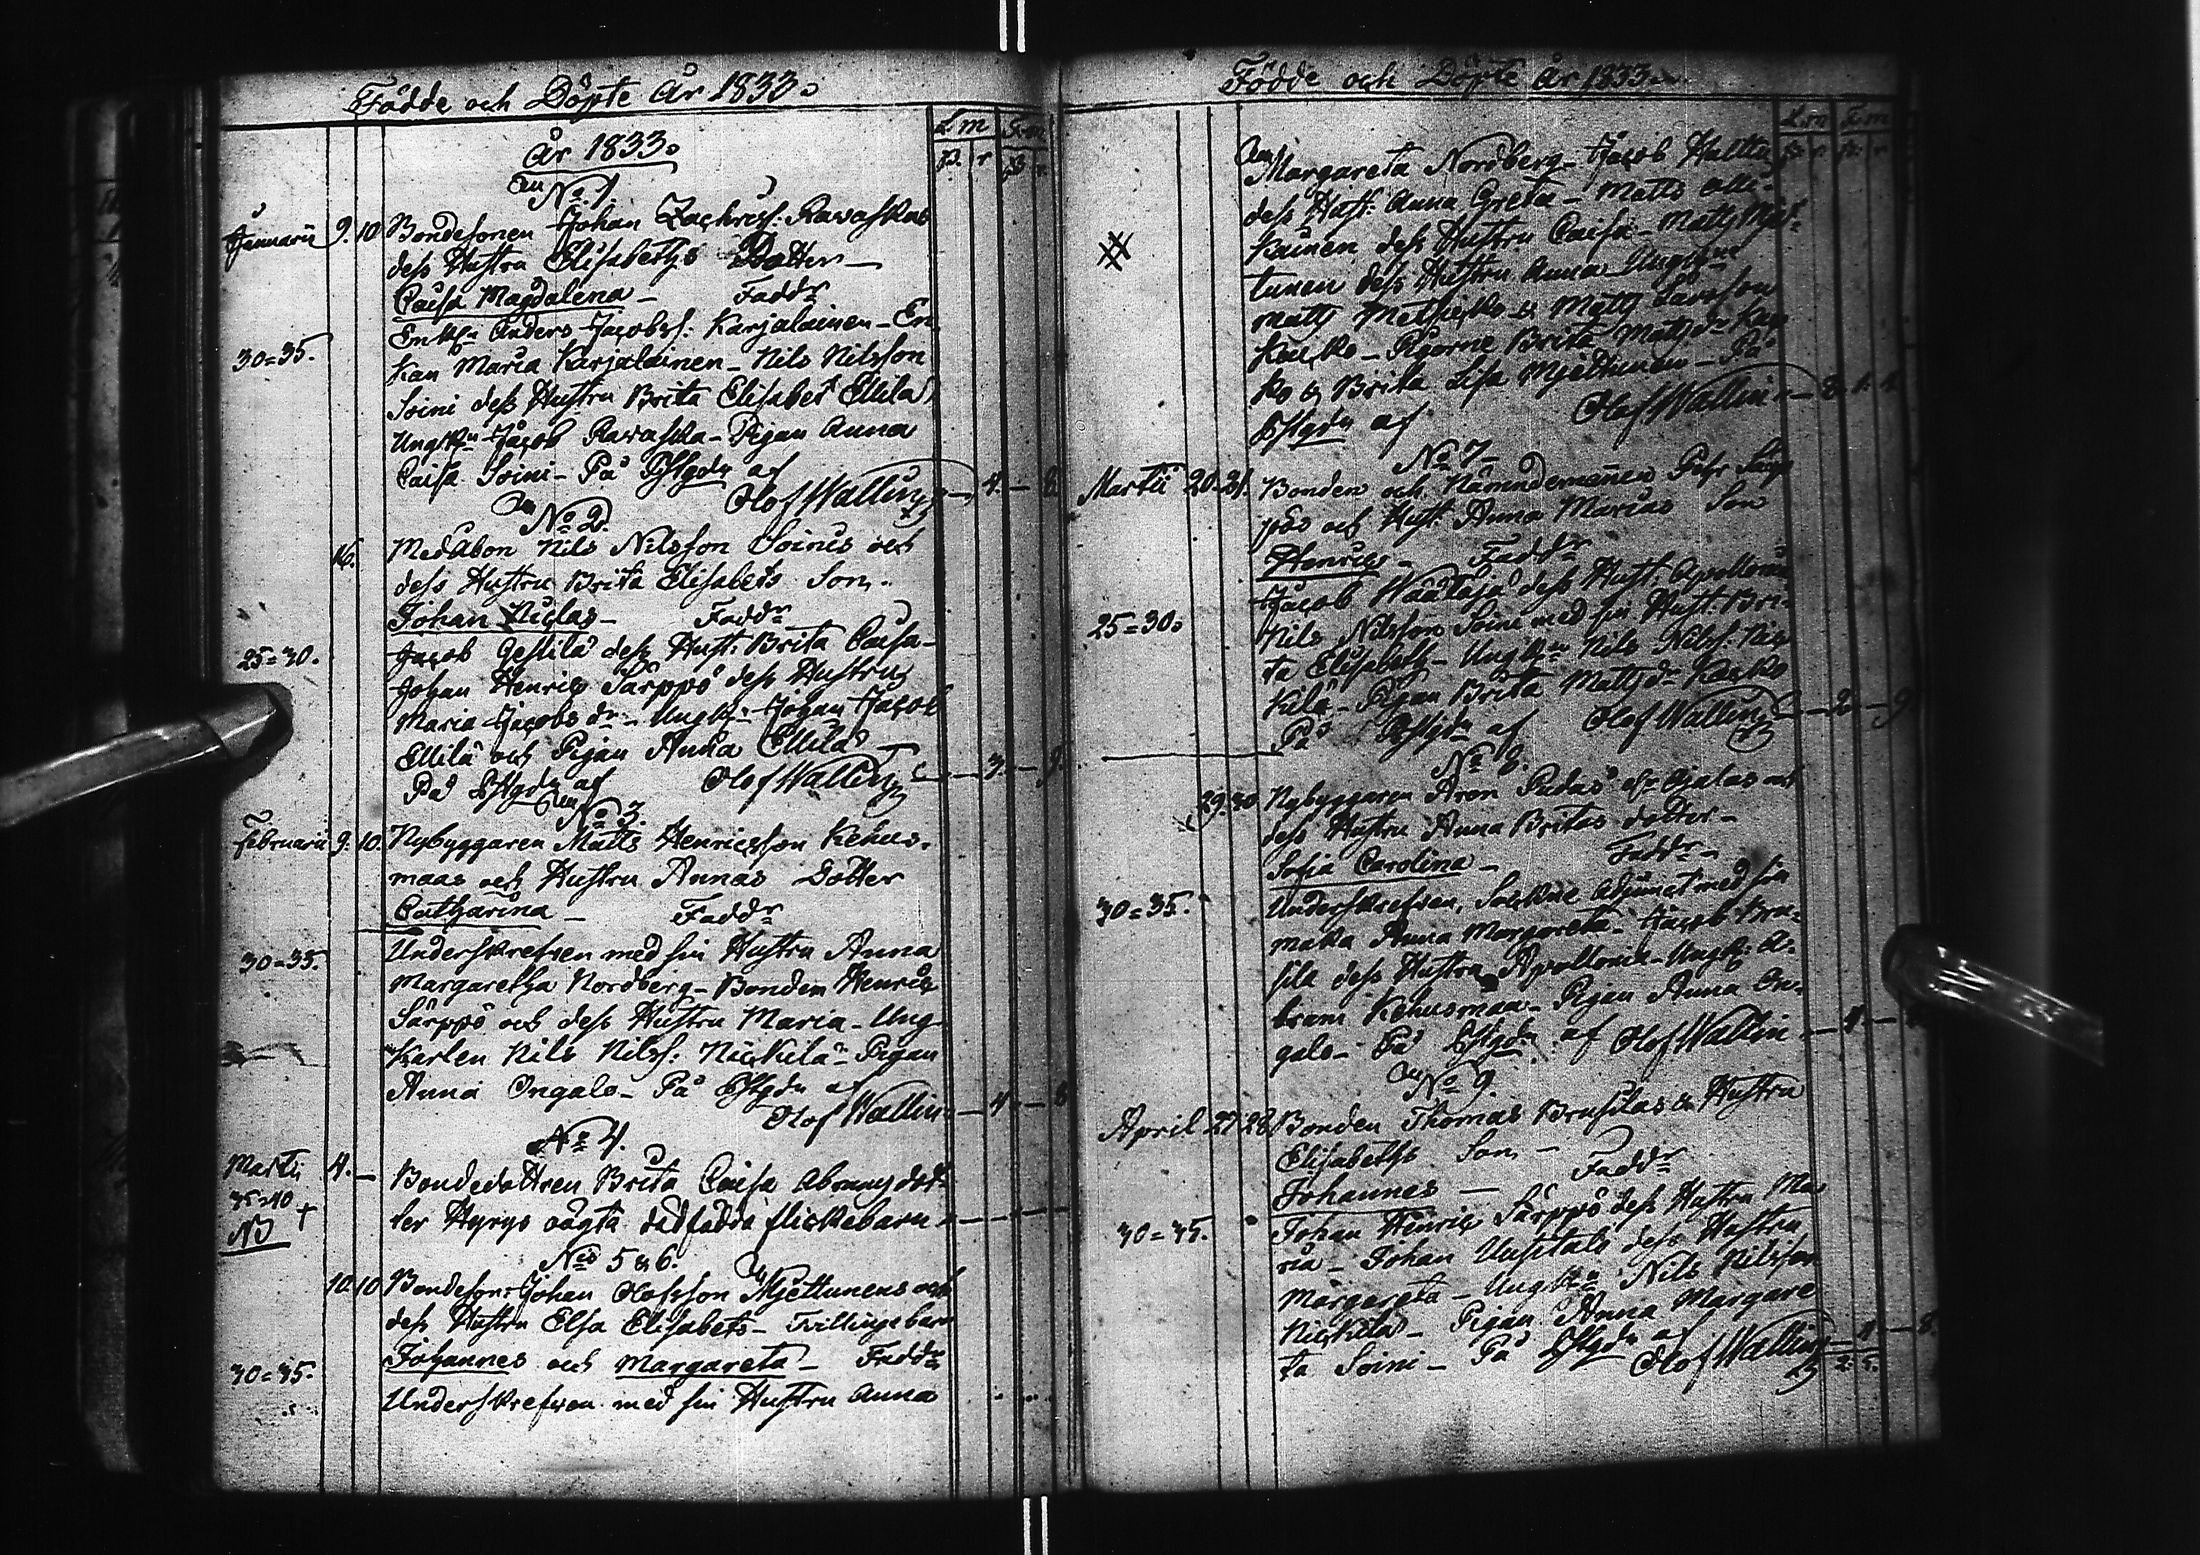 Födde och Döpte År 1833.
L.m F.m
p. r p r
År 1833.
No. 1.
Januarii 9. 10 Bondesonen Johan Zachriss: Ravaskas
dess Hustru Elisabeths Dotter —
Caisa Magdalena — Faddr
Enkl:n Anders Jacobss: Karjalainen — En-
30=35. kan Maria Karjalainen — Nils Nilsson
Soini dess Hustru Brita Elisabet Ellilä
Ungk:n Jacob Ravaska — Pigan Anna
Caisa Soini — På Psthgdn af
Olof Wallin — 4. — 8.
No. 2.
16. Medåbon Nils Nilsson Soinis och
dess Hustru Brita Elisabets Son.
Johan Niclas — Faddr
25=30. Jacob Gestilä dess Hust: Brita Caisa —
Johan Henric Särppö dess Hustru
Maria Jacobs dr — Ungk:n Johan Jacob
Ellilä och Pigan Anna Ellilä —
På Psthgdn af Olof Wallin — 3. — 9.
No. 3.
Februarii 9. 10. Nybyggaren Matts Henricsson Kehus-
maas och Hustru Annas Dotter
Catharina — Faddr
30=35. Underskrefven med sin Hustru Anna
Margaretha Nordberg — Bonden Henric
Särppö och dess Hustru Maria — Ung-
Karlen Nils Nilss: Nickilä — Pigan
Anna Ongalo — På Psthgdn af
Olof Wallin — 4. — 8
No. 4.
Martii 4. — Bondedottren Brita Caisa Abramsdot-
35=40 + ter Hyrys oägta dödfödda flickebarn
No 5 & 6.
10. 10 Bondeson: Johan Olofsson Mjettunens och
dess Hustru Elsa Elisabets — Tvillingebarn
Johannes och Margareta — Faddr
30=35. Underskrefven med sin Hustru Anna
Födde och Döpte År 1833.
L.m F.m
Margareta Nordberg — Jacob Hultin
dess Hust: Anna Greta — Matts Alli-
kainen dess Hustru Caisa — Matts Mjet-
tunen dess Hustru Anna — Ungkne
Matts & Matts Larsson
Kaicko — Pigorne Brita Mattsdr Kaic-
ko & Brita Lisa Mjettunen — På
Psthgdn af Olof Wallin — 8.
No 7 —
Martii 20. 21. Bonden och Nämndemannen Pehr Särp-
pös och Hust: Anna Marias Son
Henric — Faddr
Jacob Määtäjä dess Hust: Apollonia
25=30. Nils Nilsson Soini med sin Hust: Bri-
ta Elisabeth — Ungk:n Nils Nilss: Nic-
kilä — Pigan Brita Mattsdr Kaicko
På Psthgdn af Olof Wallin — 2. — 9
No 8.
29. 30 Nybyggaren Aron Pudas efr Ojalas och
dess Hustru Anna Britas dotter —
Sofia Carolina — Faddr —
30=35. Underskrefven, Sockne Adjunct med sin
maka Anna Margareta — Jacob Bru-
sila dess Hustru Apollonia — Ungk: A-
bram Kehusmaa — Pigan Anna On-
galo — På Psthgdn af Olof Wallin — 4 —
No 9.
April 27 28 Bonden Thomas Brusilas & Hustru
Elisabeths Son —
Johannes — Faddr
30=35. Johan Henric Särppö dess Hustru Ma-
ria — Johan Uusitalo dess Hustru
Margareta — Ungk:n Nils Nilsson
Nickilä — Pigan Anna Margare-
ta Soini — På Psthgdn af
Olof Wallin — 4 — 8.